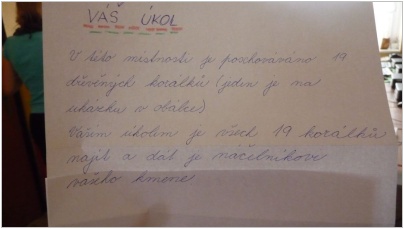 VÁŠ ÚKOL
V této místnosti je poschováváno 19
dřevěných korálků (jeden je na
ukázku v obálce)
Vašim úkolem je všech 19 korálků
najít a dát je náčelníkovi
vašeho kmene